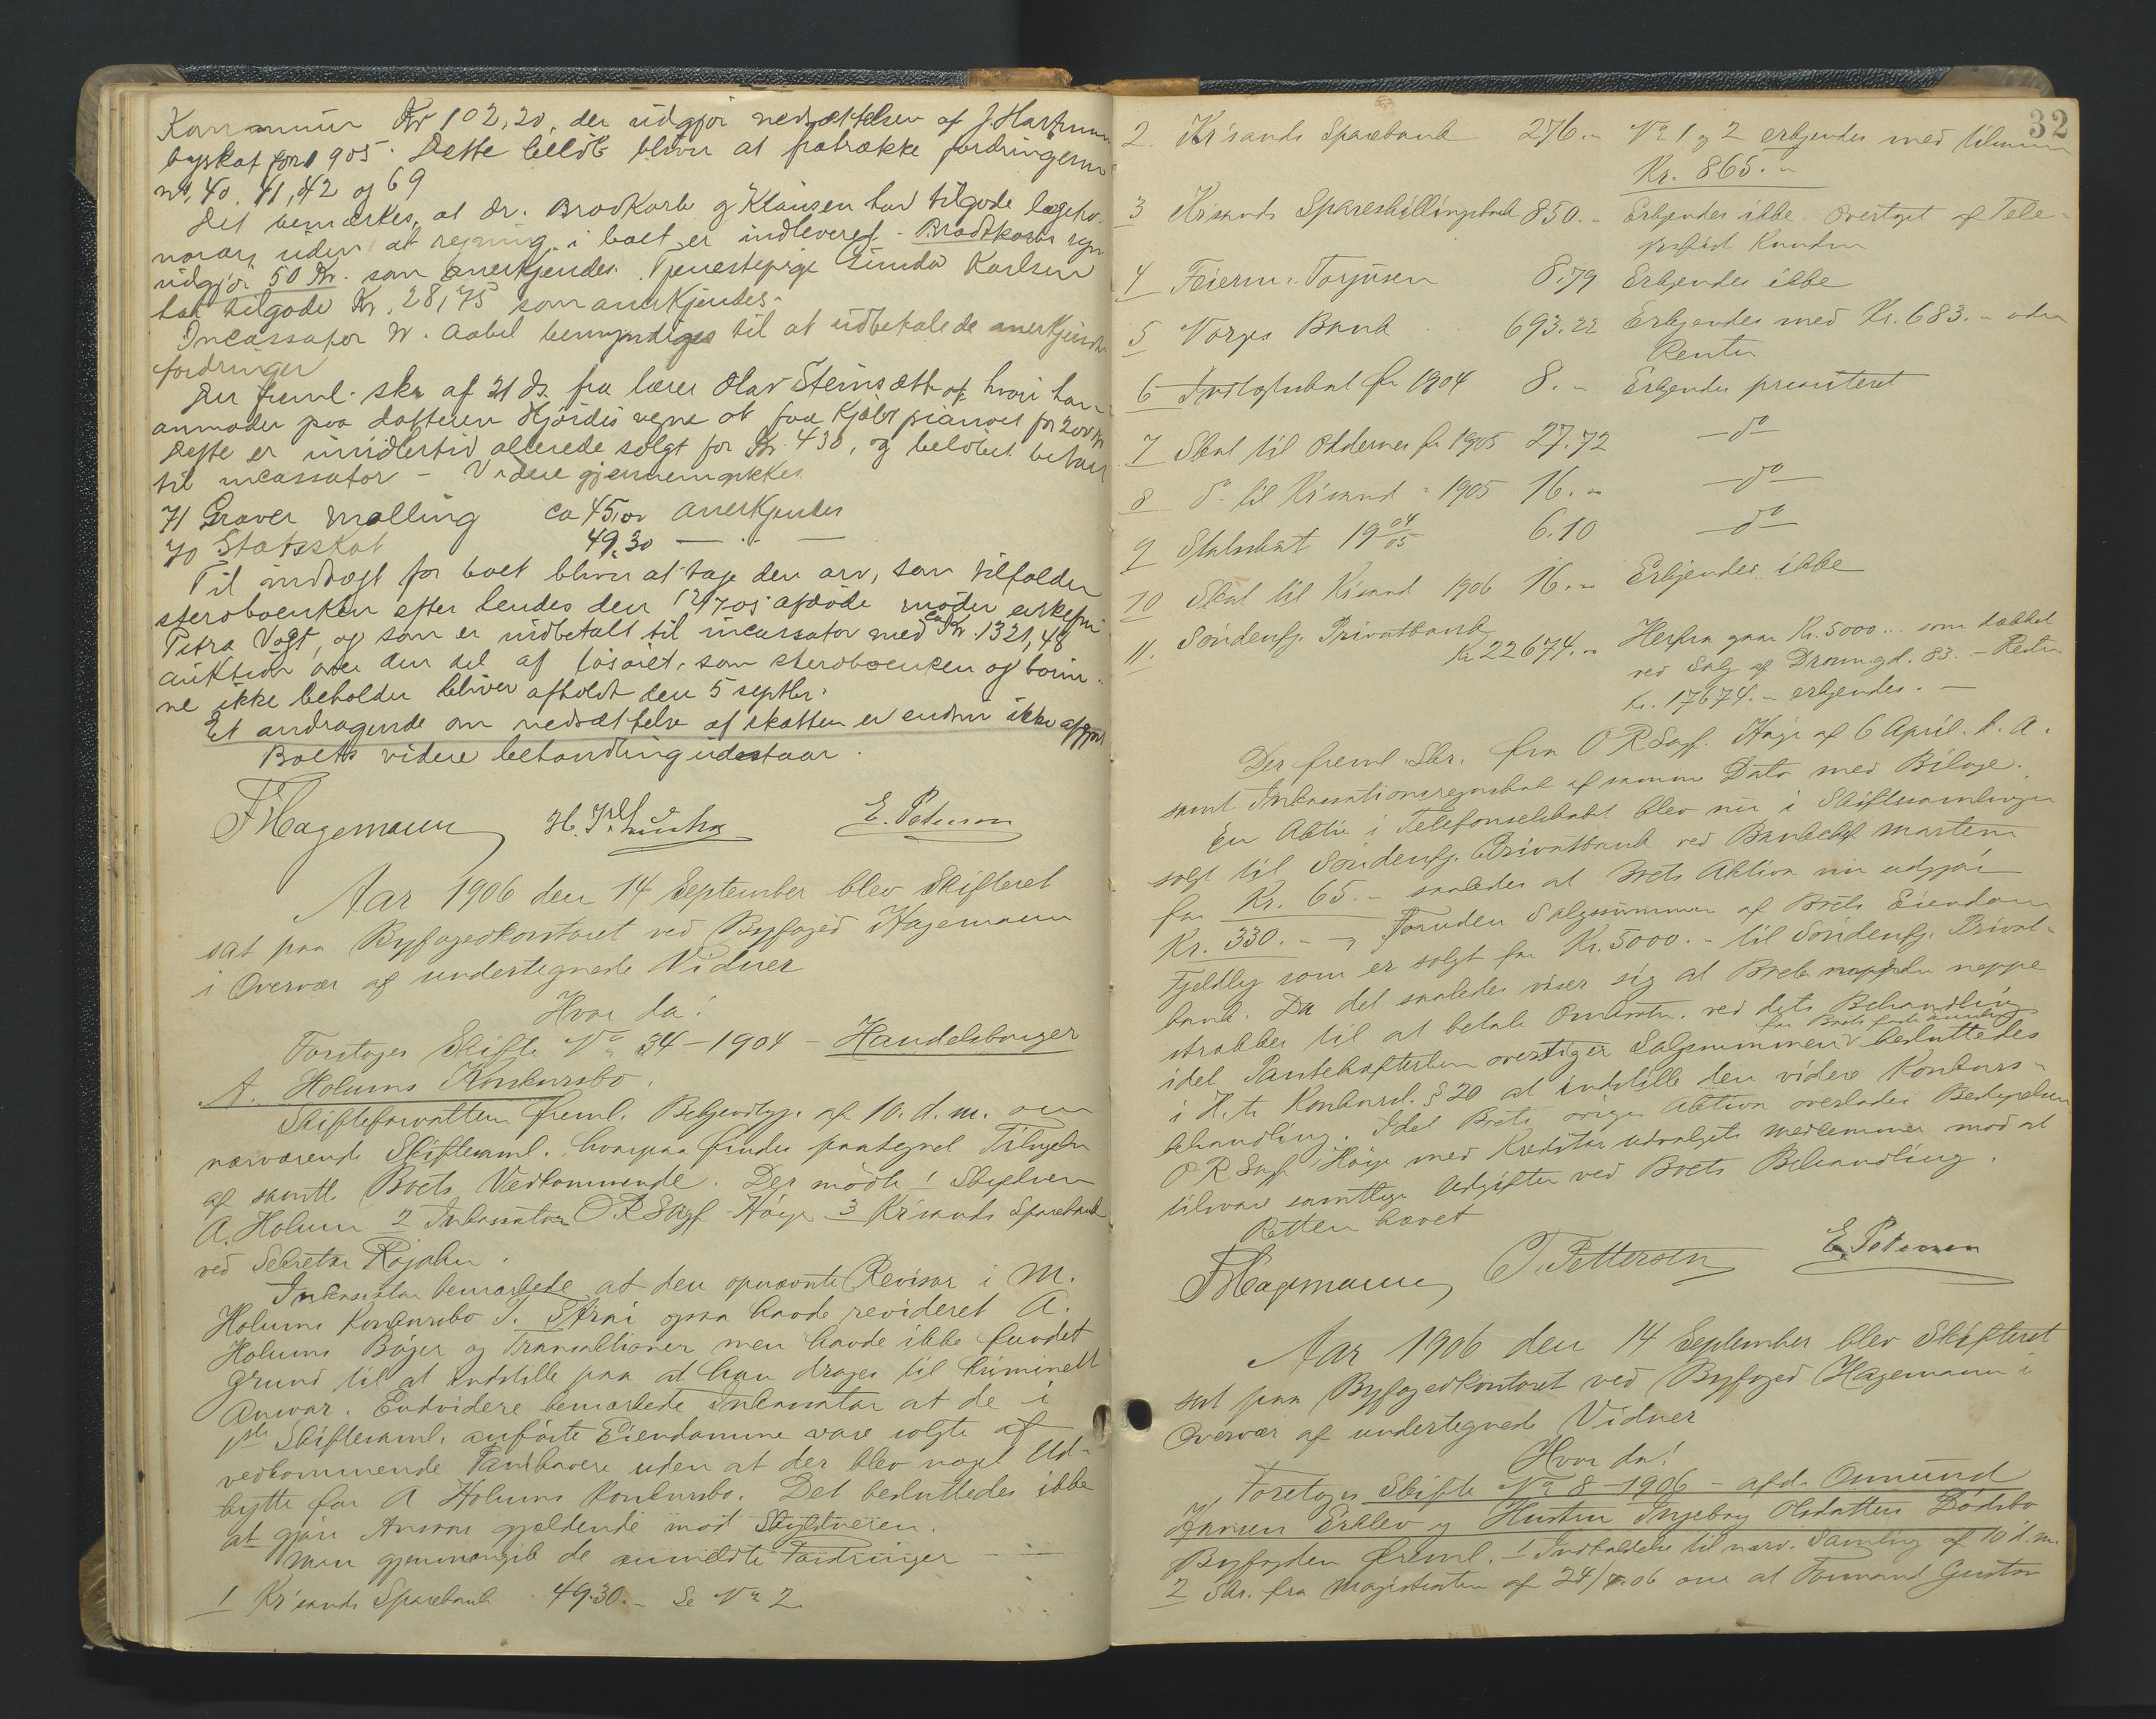 Kommun Kr 102,20, der udgjør nedsættelsen af J. Hartmann
byskat for 1905. Dette beløb bliver at fratrække fordringerne
no, 40. 41, 42 og 69
Det bemærkes, at dr. Brodkorb og Klausen har tilgode lægeho-
norar, uden at regning i boet er indleveret - Brodtkorbs regn
udgjør 50 Kr. som anerkjendes. Tjenestepige Karlsen
har tilgode Kr. 28,75 som anerkjendes.
Incassator N. Aabel bemyndiges til at udbetale de anerkjendte
fordringer
Der freml. skr af 21 ds. fra lærer Olav Steinsætt hvori han
anmoder paa datteren Hjørdis vegne at faa kjøbt pianoet for 200 Kr
Dette er imidlertid allerede solgt for Kr. 430, og beløbet betalt
til incassator - Videre gjennemgikkes
71 Graver Mølling ca 45,00 anerkjendes
70 Statsskat 49,30 — " —
Til indtægt for boet bliver at tage den arv, som tilfalder
sterboenken efter hendes den afdøde moder enkefru
Petra Vogt, og som er indbetalt til incassator med ca Kr. 1321,48
auktion over den del af løsøret, som sterboenken og børne-
ne ikke beholder bliver afholdt den 5 septbr.
Et andragende om nedsættelse af skatten er endnu ikke afgjort
Boets videre behandling udestaar.
FHagemann E. Petersen
Aar 1906 den 14 September blev Skifteret
sat paa Byfogedkontoret ved Byfoged Hagemann
i Overvær af undertegnede Vidner
Hvor da!
Foretoges Skifte No 34-1904 - Handelsborger
A. Holums Konkursbo.
Skifteforvalteren freml. Bekjendtgj. af 10. d. m. om
nærværende Skiftesaml. hvorpaa findes paategnet Tilsigelse
af samtl. Boets Vedkommende. Der mødte 1 Skyldneren
A. Holum 2 Inkassator O R Sagf Høye 3 Kr'sands Sparebank
ved Sekretær
Inkassator bemærkede at den opnævnte Revisor i M.
Holums Konkursbo T. Strai ogsaa havde revideret A.
Holums Bøger og Transaktioner men havde ikke fundet
Grund til at indstille paa at han drages til kriminelt
Ansvar. Endvidere bemærkede Inkassator at de i
1ste Skiftesaml. anførte Eiendomme vare solgte af
vedkommende Panthavere uden at der blev noget Ud-
bytte for A Holums Konkursbo. Det besluttedes ikke
at gjøre Ansvar gjældende mod Skyldneren.
Man gjennemgik de anmeldte Fordringer
1 Kr'sands Sparebank 49.30.- Se No 2
32
2. Kr'sands Sparebank 276.- No 1 og 2 erkjendes med tilsammen
Kr. 865.-
3 Kr'sands Spareskillingsbank 850.- Erkjendes ikke. Overtaget af Tele-
grafist Knudsen
4 Feierm. Torjusen 8.79 Erkjendes ikke
5 Norges Bank 693.22 Erkjendes med Kr. 683.- uden
Renter
6 Indtægtsskat for 1904 8.- Erkjendes prioriteret
7 Skat til Oddernes for 1905 27.72 - do -
8 do til Kr'sand - 1905 16.- - do -
9 Statsskat 1904/05 6.10 - do -
10 Skat til Kr'sand 1906 16.- Erkjendes ikke
11. Søndenfj. Privatbank Kr 22674.- Herfra gaar Kr. 5000... som dækket
ved Salg af Dronng.d. 83. - Resten
Kr. 17674.- erkjendes. -
Der freml. Skr. fra O R Sagf. Høye af 6 April. d. A.
samt Inkassationsregnskab af samme Dato med Bilage.
En Aktie i Telefonselskabet blev nu i Skiftesamlingen
solgt til Søndenfj. Privatbank ved Bankchef Martens
for Kr. 65.- saaledes at Boets Aktiva nu udgjør
Kr. 330.- foruden Salgssummen af Boets Eiendom
Fjeldlyg som er solgt for Kr. 5000.- til Søndenfj. Privat-
bank. Da det saaledes viser sig at Boets neppe
strækker til at betale Omkostn. ved dets Behandling
idet Pantehæftelsen overstiger Salgssummen for Boets faste Eiendom besluttedes
i H. t. Konkursl. § 20 at indstille den videre Konkurs-
behandling. Idet Boets øvrige Aktiva overlades Bestyrelsen
O R Sagf Høye med Kreditorudvalgets Medlemmer mod at
tilsvare samtlige Udgifter ved Boets Behandling.
Retten hævet
FHagemann T. Pettersen E. Petersen
Aar 1906 den 14 September blev Skifteret
sat paa Byfogedkontoret ved Byfoged Hagemann i
Overvær af undertegnede Vidner
Hvor da!
Foretoges Skifte No 8-1906 - afd. Osmund
Jansen Erklev og Hustru Ingeborg Olsdatters Dødsbo
Byfogden freml. 1 Indkaldelse til nærv. Samling af 10 d. m.
2 Skr. fra Magistraten af 24/ 06 om at Formand Gustav